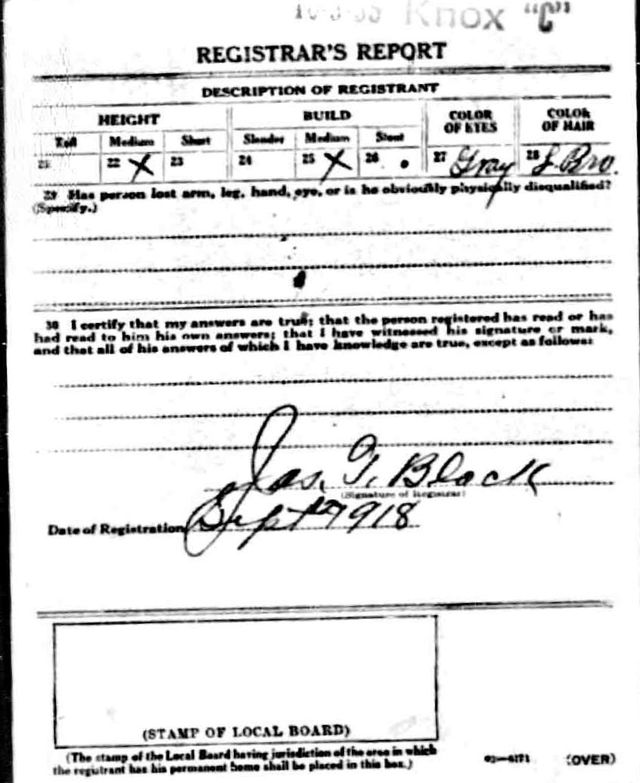 Knox "C"
REGISTRAR'S REPORT
DESCRIPTION OF REGISTRANT
HEIGHT BUILD COLOR OF EYES COLOR OF HAIR
Tall Medium Short Slender Medium Stout
21 22 X 23 24 25 X 26 27 Gray 28 L. Bro.
29 Has person lost arm, leg, hand, eye, or is he obviously physically disqualified?
(Specify.)
30 I certify that my answers are true; that the person registered has read or has
had read to him his own answers; that I have witnessed his signature or mark,
and that all of his answers of which I have knowledge are true, except as follows:
Jas. Black
(Signature of Registrar)
Date of Registration Sept 918
(STAMP OF LOCAL BOARD)
(The stamp of the Local Board having jurisdiction of the area in which
the registrant has his permanent home shall be placed in this box.)
03—6171 (OVER)